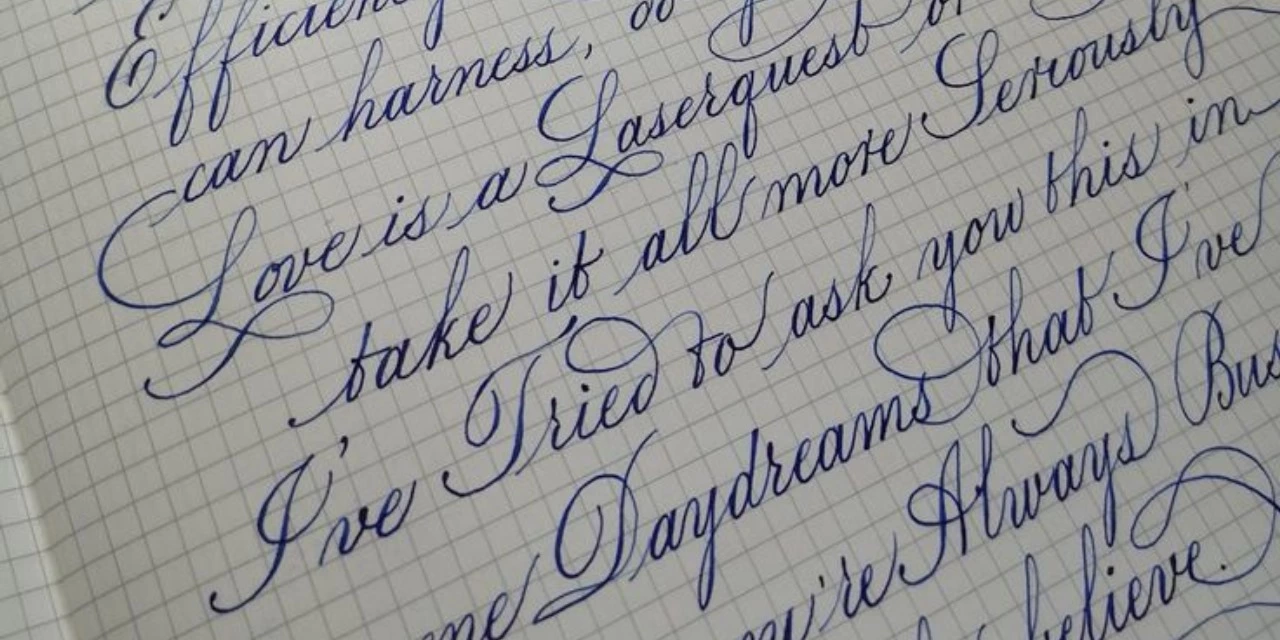 can harness,
Love is a Laserquest
take it all more Seriously
I've Tried to ask you this in
Daydreams that I've
Always
believe.